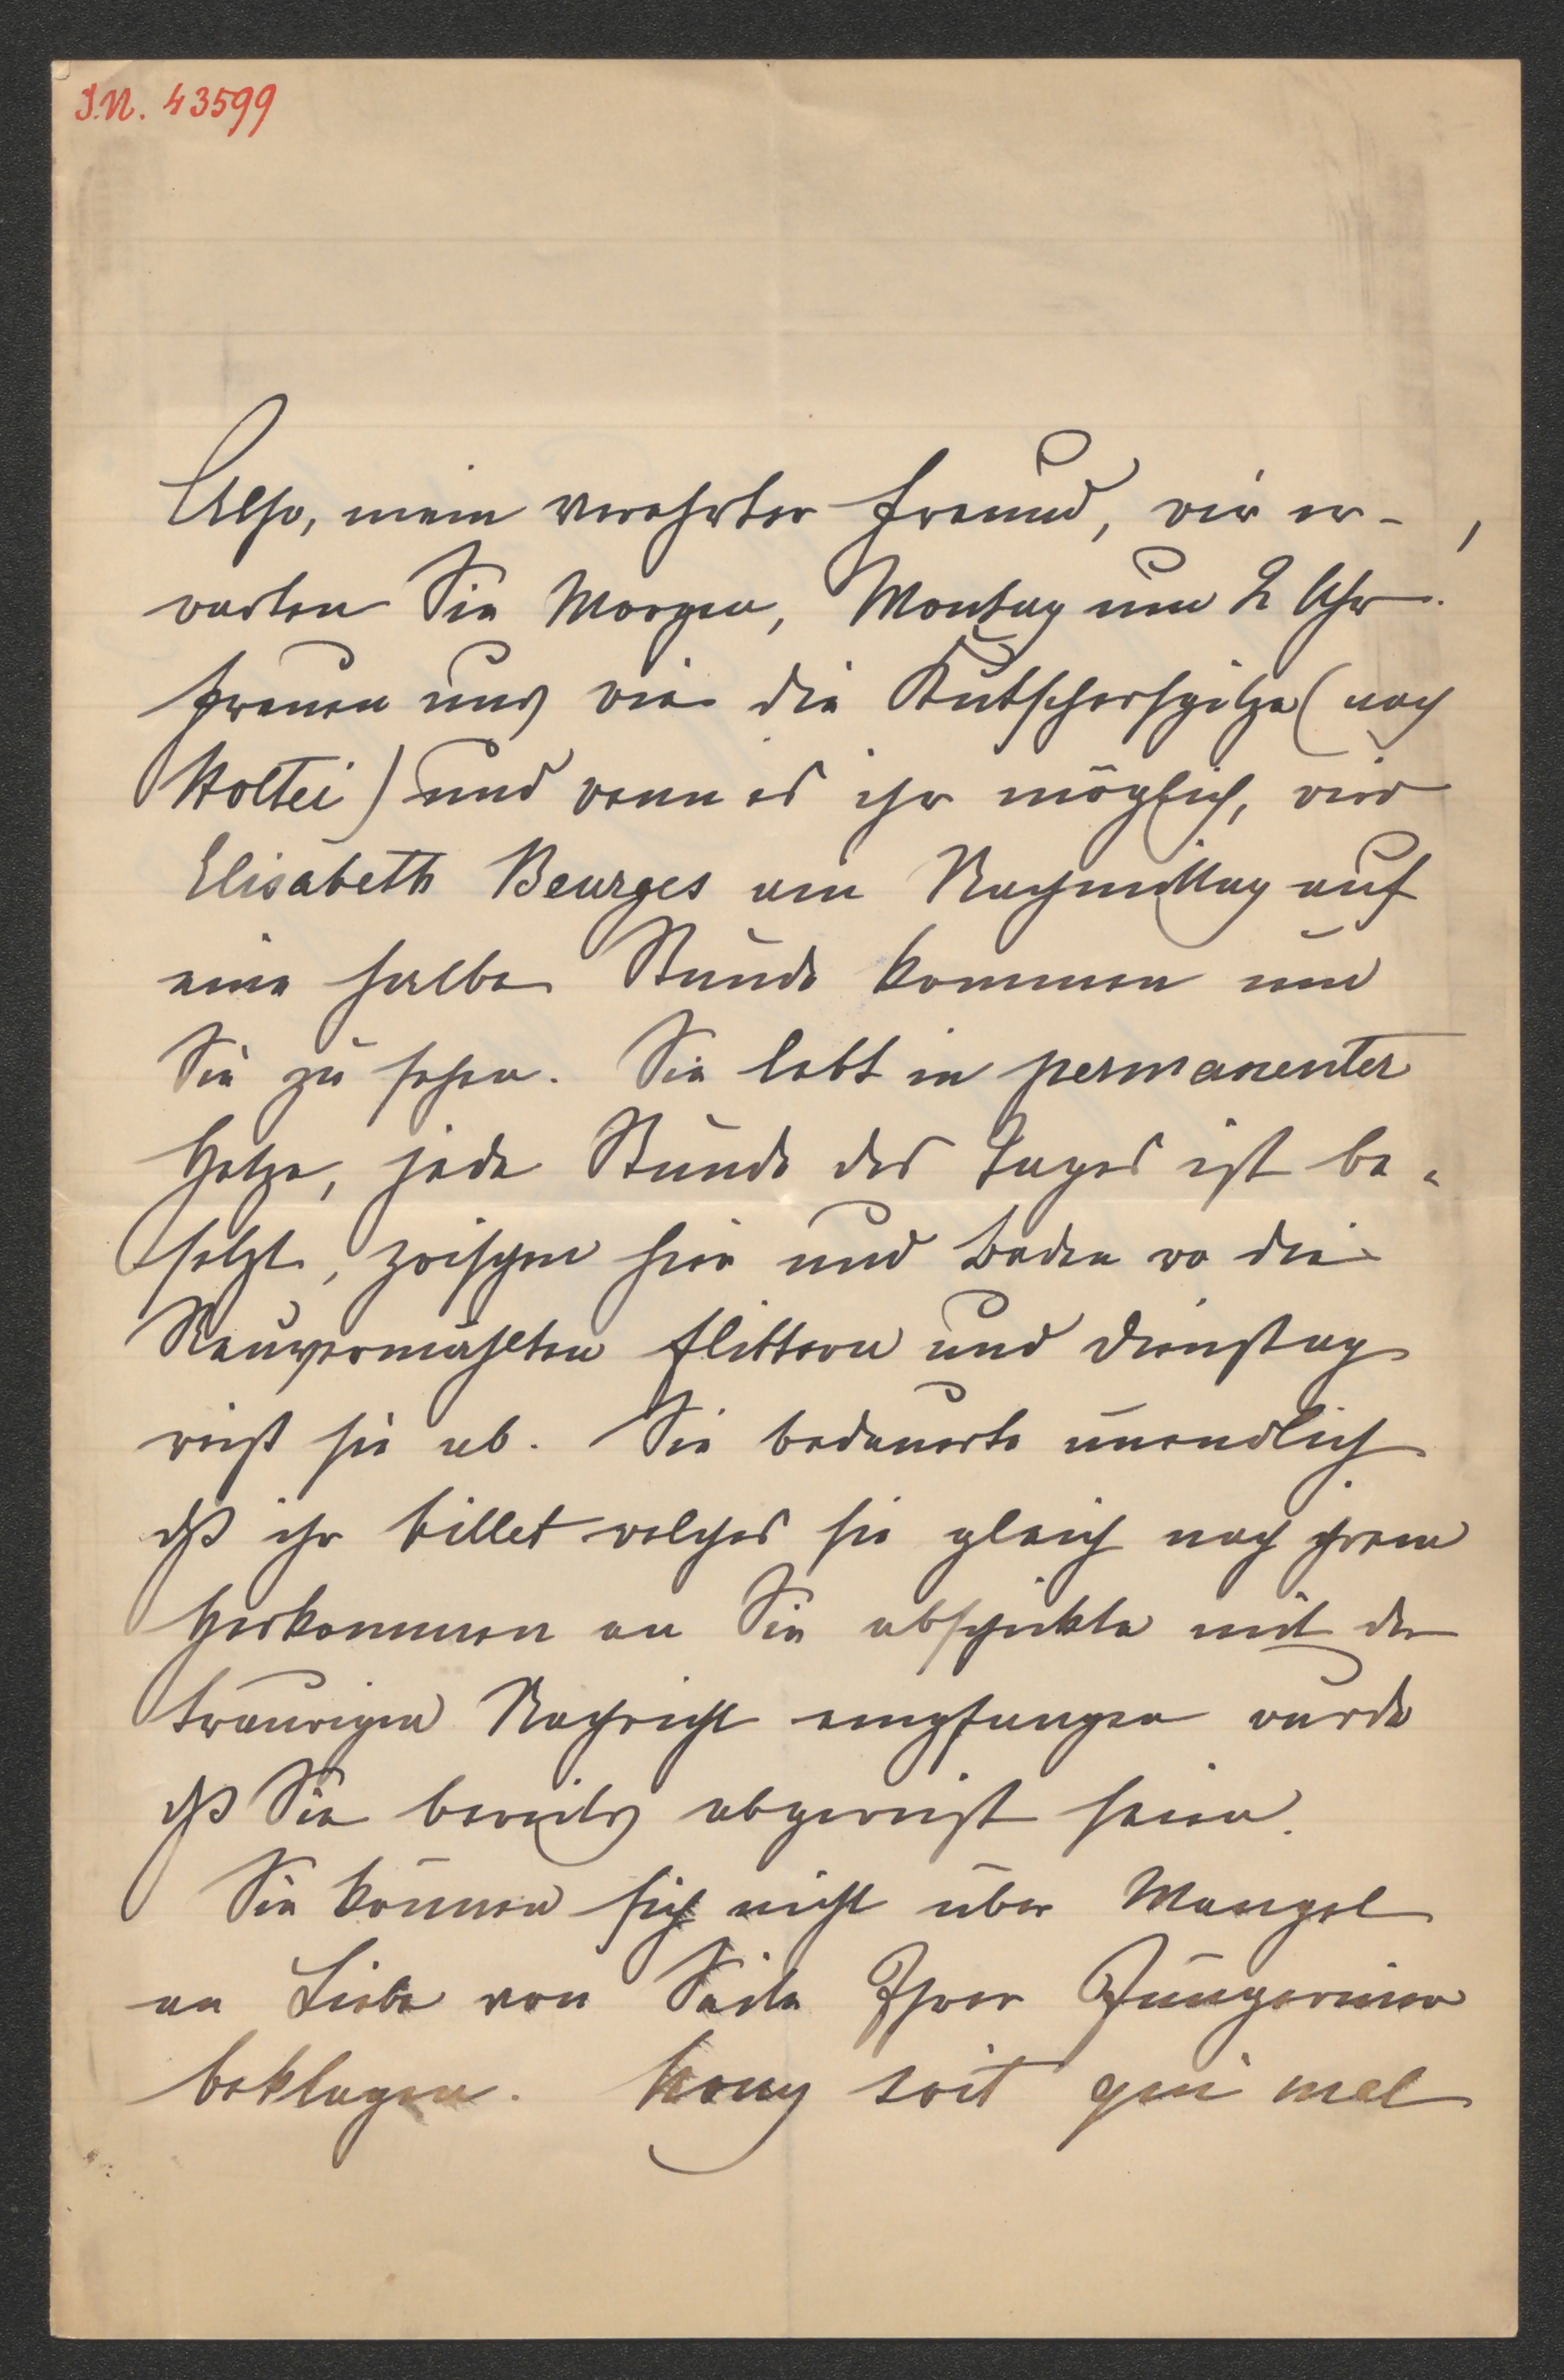 I.N. 43599
Also, mein verehrter Freund, wir er-
warten Sie Morgen, Montag um 2 Uhr.
freuen uns wie die Kutscherspitze (nach
Holtei) und wenn es ihr möglich, wird
Elisabeth Beurges am Nachmittag auf
eine halbe Stunde kommen um
Sie zu sehen. Sie lebt in permanenter
Hetze, jede Stunde des Tages ist be-
setzt, zwischen hier und Baden wo die
Neuvermählten flittern und Dienstag
reist sie ab. Sie bedauerte unendlich
dß ihr Billet welches sie gleich nach ihrem
Herkommen an Sie abschickte mit der
traurigen Nachricht empfangen wurde
dß Sie bereits abgereist seien.
Sie können sich nicht über Mangel
an Liebe von Seite Ihrer Jüngerinen
beklagen. hony soit qui mal